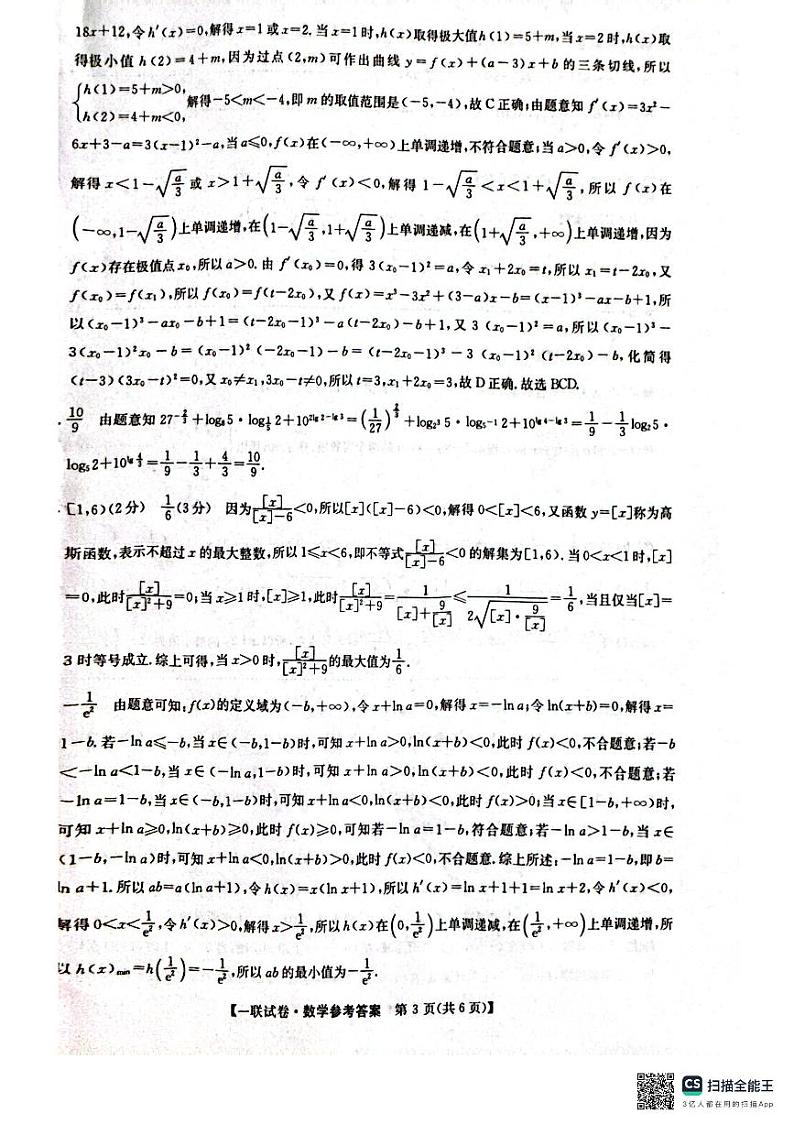 18x+12,令 h′(x)=0,解得 x=1 或 x=2. 当 x=1 时,h(x)取得极大值 h(1)=5+m,当 x=2 时,h(x)取
得极小值 h(2)=4+m,因为过点(2,m)可作出曲线 y=f(x)+(a-3)x+b 的三条切线,所以
{h(1)=5+m>0, h(2)=4+m<0, 解得-5<m<-4,即 m 的取值范围是(-5,-4),故 C 正确;由题意知 f′(x)=3x²-
6x+3-a=3(x-1)²-a,当 a≤0,f(x)在(-∞,+∞)上单调递增,不符合题意;当 a>0,令 f′(x)>0,
解得 x<1-√(a/3) 或 x>1+√(a/3),令 f′(x)<0,解得 1-√(a/3)<x<1+√(a/3),所以 f(x)在
(-∞,1-√(a/3))上单调递增,在(1-√(a/3),1+√(a/3))上单调递减,在(1+√(a/3),+∞)上单调递增,因为
f(x)存在极值点 x₀,所以 a>0. 由 f′(x₀)=0,得 3(x₀-1)²=a,令 x₁+2x₀=t,所以 x₁=t-2x₀,又
f(x₀)=f(x₁),所以 f(x₀)=f(t-2x₀),又 f(x)=x³-3x²+(3-a)x-b=(x-1)³-ax-b+1,所
以(x₀-1)³-ax₀-b+1=(t-2x₀-1)³-a(t-2x₀)-b+1,又 3(x₀-1)²=a,所以(x₀-1)³-
3(x₀-1)²x₀-b=(x₀-1)²(-2x₀-1)-b=(t-2x₀-1)³-3(x₀-1)²(t-2x₀)-b,化简得
(t-3)(3x₀-t)²=0,又 x₀≠x₁,3x₀-t≠0,所以 t=3,x₁+2x₀=3,故 D 正确. 故选 BCD.
. 10/9 由题意知 27^(-2/3)+log₈5·log_(1/5)2+10^(2lg2-lg3)=(1/27)^(2/3)+log_(2³)5·log_(5⁻¹)2+10^(lg4-lg3)=1/9-1/3log₂5·
log₅2+10^(lg 4/3)=1/9-1/3+4/3=10/9.
. [1,6)(2分) 1/6(3分) 因为[x]/([x]-6)<0,所以[x]([x]-6)<0,解得 0<[x]<6,又函数 y=[x]称为高
斯函数,表示不超过 x 的最大整数,所以 1≤x<6,即不等式[x]/([x]-6)<0 的解集为[1,6). 当 0<x<1 时,[x]
=0,此时[x]/([x]²+9)=0;当 x≥1 时,[x]≥1,此时[x]/([x]²+9)=1/([x]+9/[x])≤1/(2√([x]·9/[x]))=1/6,当且仅当[x]=
3 时等号成立. 综上可得,当 x>0 时,[x]/([x]²+9)的最大值为1/6.
-1/e² 由题意可知:f(x)的定义域为(-b,+∞),令 x+ln a=0,解得 x=-ln a;令 ln(x+b)=0,解得 x=
1-b. 若-ln a≤-b,当 x∈(-b,1-b)时,可知 x+ln a>0,ln(x+b)<0,此时 f(x)<0,不合题意;若-b
<-ln a<1-b,当 x∈(-ln a,1-b)时,可知 x+ln a>0,ln(x+b)<0,此时 f(x)<0,不合题意;若
-ln a=1-b,当 x∈(-b,1-b)时,可知 x+ln a<0,ln(x+b)<0,此时 f(x)>0;当 x∈[1-b,+∞)时,
可知 x+ln a≥0,ln(x+b)≥0,此时 f(x)≥0,可知若-ln a=1-b,符合题意;若-ln a>1-b,当 x∈
(1-b,-ln a)时,可知 x+ln a<0,ln(x+b)>0,此时 f(x)<0,不合题意. 综上所述:-ln a=1-b,即 b=
ln a+1. 所以 ab=a(ln a+1),令 h(x)=x(ln x+1),所以 h′(x)=ln x+1+1=ln x+2,令 h′(x)<0,
解得 0<x<1/e²,令 h′(x)>0,解得 x>1/e²,所以 h(x)在(0,1/e²)上单调递减,在(1/e²,+∞)上单调递增,所
以 h(x)min=h(1/e²)=-1/e²,所以 ab 的最小值为-1/e².
【一联试卷·数学参考答案 第 3 页(共 6 页)】
CS 扫描全能王
3亿人都在用的扫描App